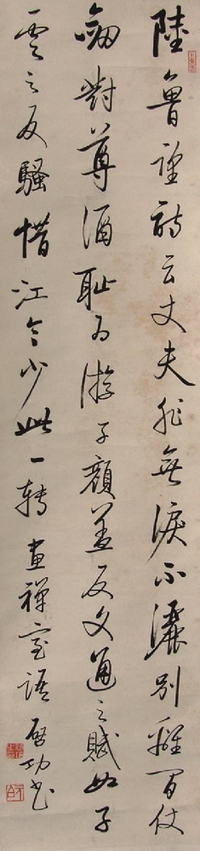 陸魯望詩云丈夫非無淚不灑別離間仗
劍對尊酒恥為游子顏蓋反文通之賦如子
雲之反騷惜江令少此一轉 畫禪室語 啟功書